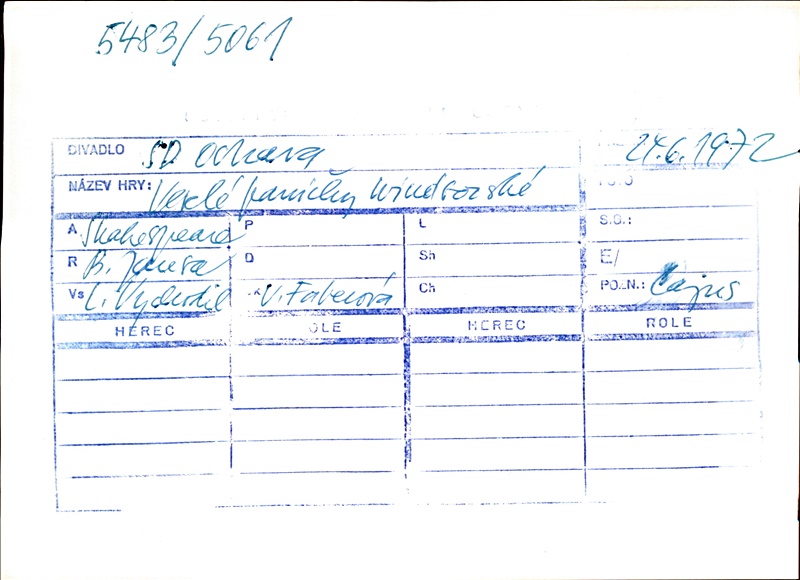 5483/5061
DIVADLO SD Ostrava 24.6.1972
NÁZEV HRY: Veselé paničky windsorské
A Shakespeare P L S.G.:
R B. Jansa D Sh E/
Vs L. Vychodil K V. Fabenová Ch POZN.: Cajus
HEREC ROLE HEREC ROLE